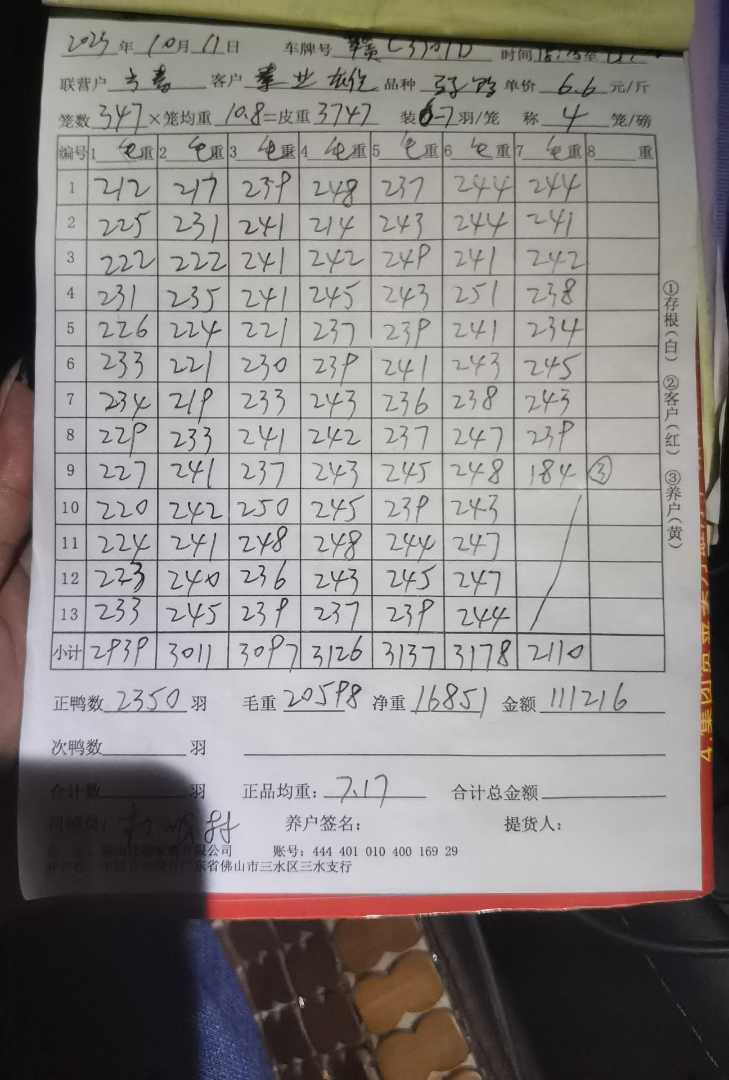 2025年10月11日 车牌号 时间
联营户 客户 品种 单价 6.6 元/斤
笼数 347 ×笼均重 10.8 =皮重 3747 装 6-7 羽/笼 称 4 笼/磅
编号 1 毛重 2 毛重 3 毛重 4 毛重 5 毛重 6 毛重 7 毛重 8 重
1 212 217 239 248 237 244 244
2 225 231 241 214 243 244 241
3 222 222 241 242 249 241 242
4 231 235 241 245 243 251 238
5 226 224 221 237 239 241 234
6 233 221 230 239 241 243 245
7 234 219 233 243 236 238 243
8 229 233 241 242 237 247 239
9 227 241 237 243 245 248 184 ③
10 220 242 250 245 239 243
11 224 241 248 248 244 247
12 223 240 236 243 245 247
13 233 245 239 237 239 244
小计 2939 3011 3097 3126 3137 3178 2110
①存根(白) ②客户(红) ③养户(黄)
正鸭数 2350 羽 毛重 20598 净重 16851 金额 111216
次鸭数 羽
合计数 羽 正品均重: 7.17 合计总金额
养户签名: 提货人:
有限公司 账号: 444 401 010 400 169 29
广东省佛山市三水区三水支行